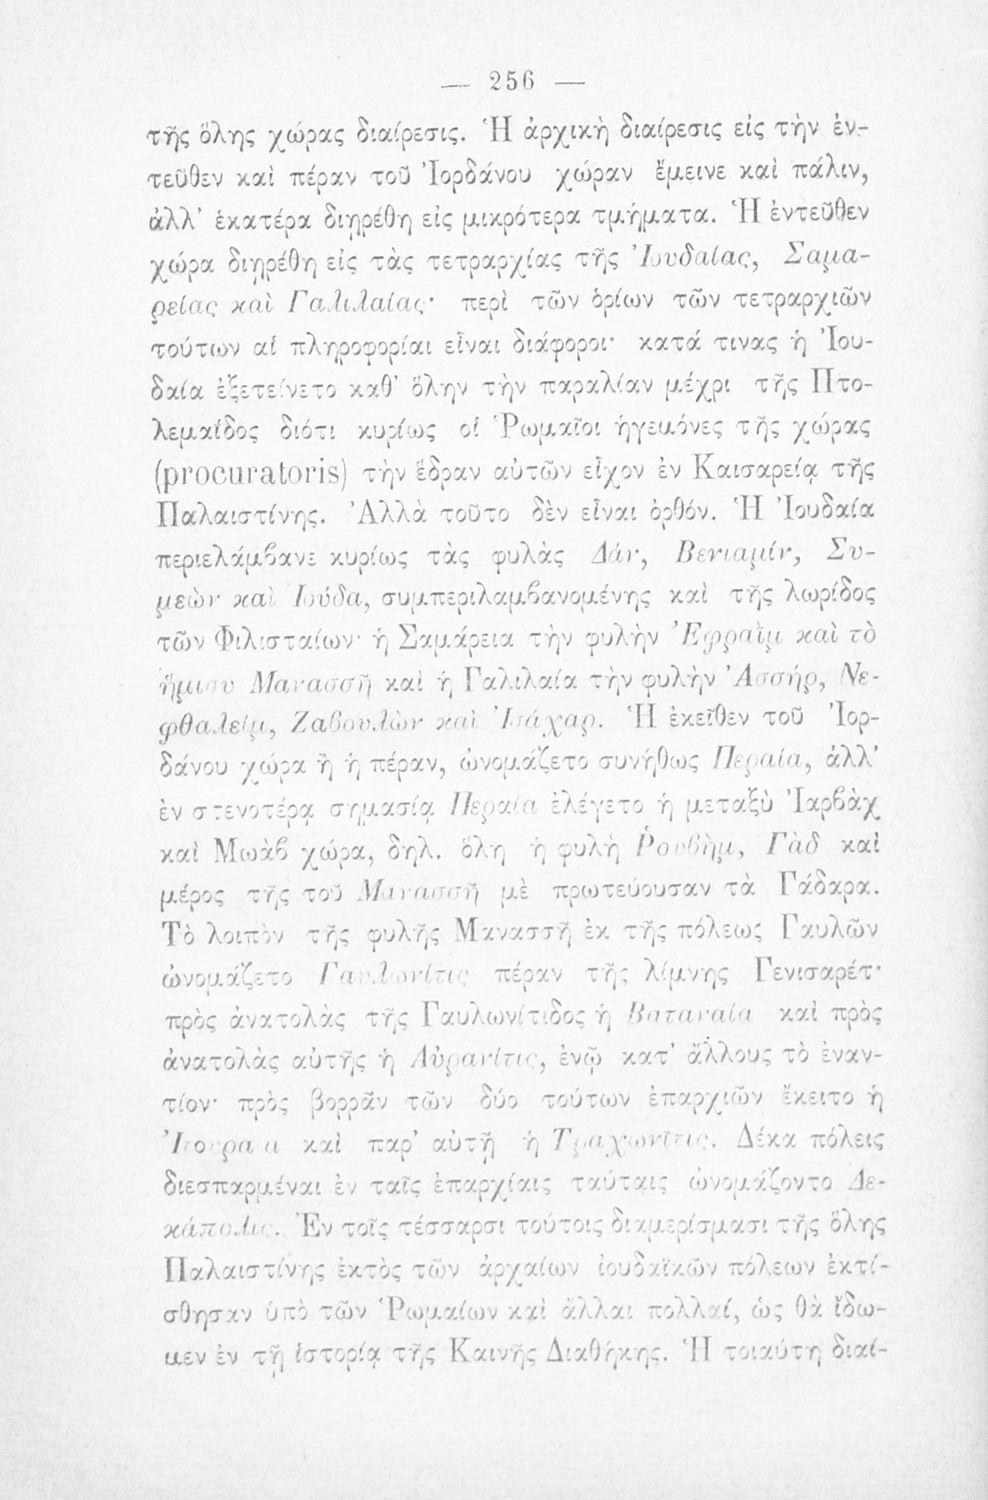 — 256 —
τῆς ὅλης χώρας διαίρεσις. Ἡ ἀρχικὴ διαίρεσις εἰς τὴν ἐν-
τεῦθεν καὶ πέραν τοῦ Ἰορδάνου χώραν ἔμεινε καὶ πάλιν,
ἀλλ’ ἑκατέρα διῃρέθη εἰς μικρότερα τμήματα. Ἡ ἐντεῦθεν
χώρα διῃρέθη εἰς τὰς τετραρχίας τῆς Ἰουδαίας, Σαμα-
ρείας καὶ Γαλιλαίας· περὶ τῶν ὁρίων τῶν τετραρχιῶν
τούτων αἱ πληροφορίαι εἶναι διάφοροι· κατά τινας ἡ Ἰου-
δαία ἐξετείνετο καθ’ ὅλην τὴν παραλίαν μέχρι τῆς Πτο-
λεμαΐδος διότι κυρίως οἱ Ῥωμαῖοι ἡγεμόνες τῆς χώρας
(procuratoris) τὴν ἕδραν αὐτῶν εἶχον ἐν Καισαρείᾳ τῆς
Παλαιστίνης. Ἀλλὰ τοῦτο δὲν εἶναι ὀρθόν. Ἡ Ἰουδαία
περιελάμβανε κυρίως τὰς φυλὰς Δάν, Βενιαμίν, Συ-
μεὼν καὶ Ἰούδα, συμπεριλαμβανομένης καὶ τῆς λωρίδος
τῶν Φιλισταίων· ἡ Σαμάρεια τὴν φυλὴν Ἐφραῒμ καὶ τὸ
ἥμισυ Μανασσῆ καὶ ἡ Γαλιλαία τὴν φυλὴν Ἀσσήρ, Νε-
φθαλείμ, Ζαβουλὼν καὶ Ἰσάχαρ. Ἡ ἐκεῖθεν τοῦ Ἰορ-
δάνου χώρα ἢ ἡ πέραν, ὠνομάζετο συνήθως Περαία, ἀλλ’
ἐν στενοτέρᾳ σημασίᾳ Περαία ἐλέγετο ἡ μεταξὺ Ἰαρβὰχ
καὶ Μωὰβ χώρα, δηλ. ὅλη ἡ φυλὴ Ῥουβὴμ, Γὰδ καὶ
μέρος τῆς τοῦ Μανασσῆ μὲ πρωτεύουσαν τὰ Γάδαρα.
Τὸ λοιπὸν τῆς φυλῆς Μανασσῆ ἐκ τῆς πόλεως Γαυλῶν
ὠνομάζετο Γαυλωνίτις πέραν τῆς λίμνης Γενισαρέτ·
πρὸς ἀνατολὰς τῆς Γαυλωνίτιδος ἡ Βαταναία καὶ πρὸς
ἀνατολὰς αὐτῆς ἡ Αὐρανίτις, ἐνῷ κατ’ ἄλλους τὸ ἐναν-
τίον· πρὸς βορρᾶν τῶν δύο τούτων ἐπαρχιῶν ἔκειτο ἡ
Ἰτουραία καὶ παρ’ αὐτῇ ἡ Τραχωνῖτις. Δέκα πόλεις
διεσπαρμέναι ἐν ταῖς ἐπαρχίαις ταύταις ὠνομάζοντο Δε-
κάπολις. Ἐν τοῖς τέσσαρσι τούτοις διαμερίσμασι τῆς ὅλης
Παλαιστίνης ἐκτὸς τῶν ἀρχαίων ἰουδαϊκῶν πόλεων ἐκτί-
σθησαν ὑπὸ τῶν Ῥωμαίων καὶ ἄλλαι πολλαί, ὡς θὰ ἴδω-
μεν ἐν τῇ ἱστορίᾳ τῆς Καινῆς Διαθήκης. Ἡ τοιαύτη διαί-